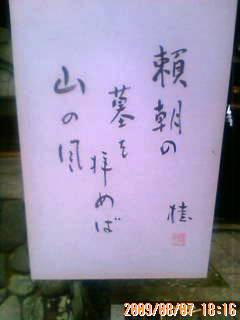 頼朝の
墓を拝めば
山の風
桂
2009/08/07 18:16